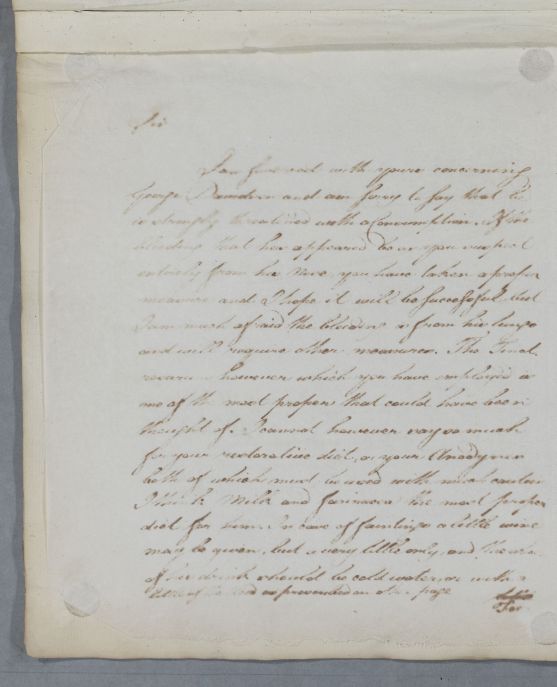 Sir
I am favored with yours concerning
George and am sorry to say that he
is strongly threatened with a Consumption. If the
bleeding that has appeared be as you suspect
entirely from his Nose, you have taken a proper
measure and I hope it will be Successful, but
I am much afraid the bleeding is from his lungs
and will require other measures. The
however which you have employed is
one of the most proper that could have been
thought of. I cannot however say so much
for your restorative diet, or your Anodynes
both of which must be used with much caution
I think Milk and farinacea the most proper
diet for him. In case of faintings a little wine
may be given, but a very little only, and the
of his drink should be cold water, or with a
little as prescribed on other page
For